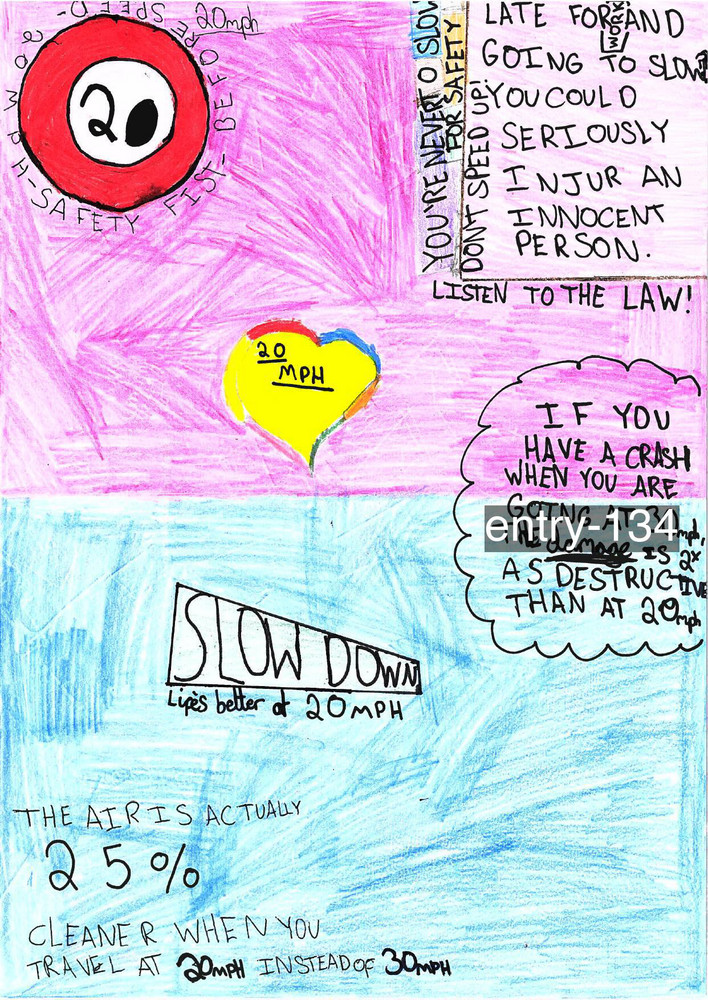 20mph
20
20MPH-SAFETY FIST-BEFORE SPEED-
YOU'RE NEVER TO SLOW
FOR SAFETY
DON'T SPEED UP
LATE FOR WORK AND
GOING TO SLOW
YOU COULD
SERIOUSLY
INJUR AN
INNOCENT
PERSON.
LISTEN TO THE LAW!
20
MPH
IF YOU
HAVE A CRASH
WHEN YOU ARE
GOING AT 30mph,
entry-134
THE demage IS 2x
AS DESTRUCTIVE
THAN AT 20mph
SLOW DOWN
Life's better at 20MPH
THE AIR IS ACTUALLY
25%
CLEANER WHEN YOU
TRAVEL AT 20MPH INSTEAD OF 30MPH